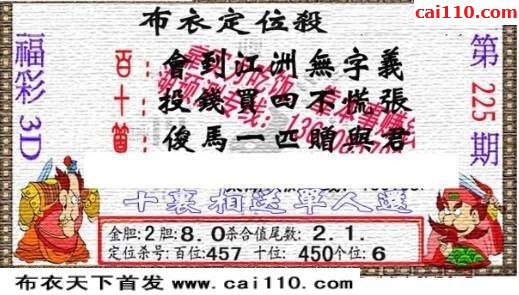 cai110.com
布衣定位殺
福彩3D
第225期
百：會到江洲無字義
十：投錢買四不慌張
個：俊馬一匹贈與君
十裏相送單人還
金胆:2胆:8.0杀合值尾数:2.1
定位杀号:百位:457 十位:450个位:6
布衣天下首发 www.cai110.com